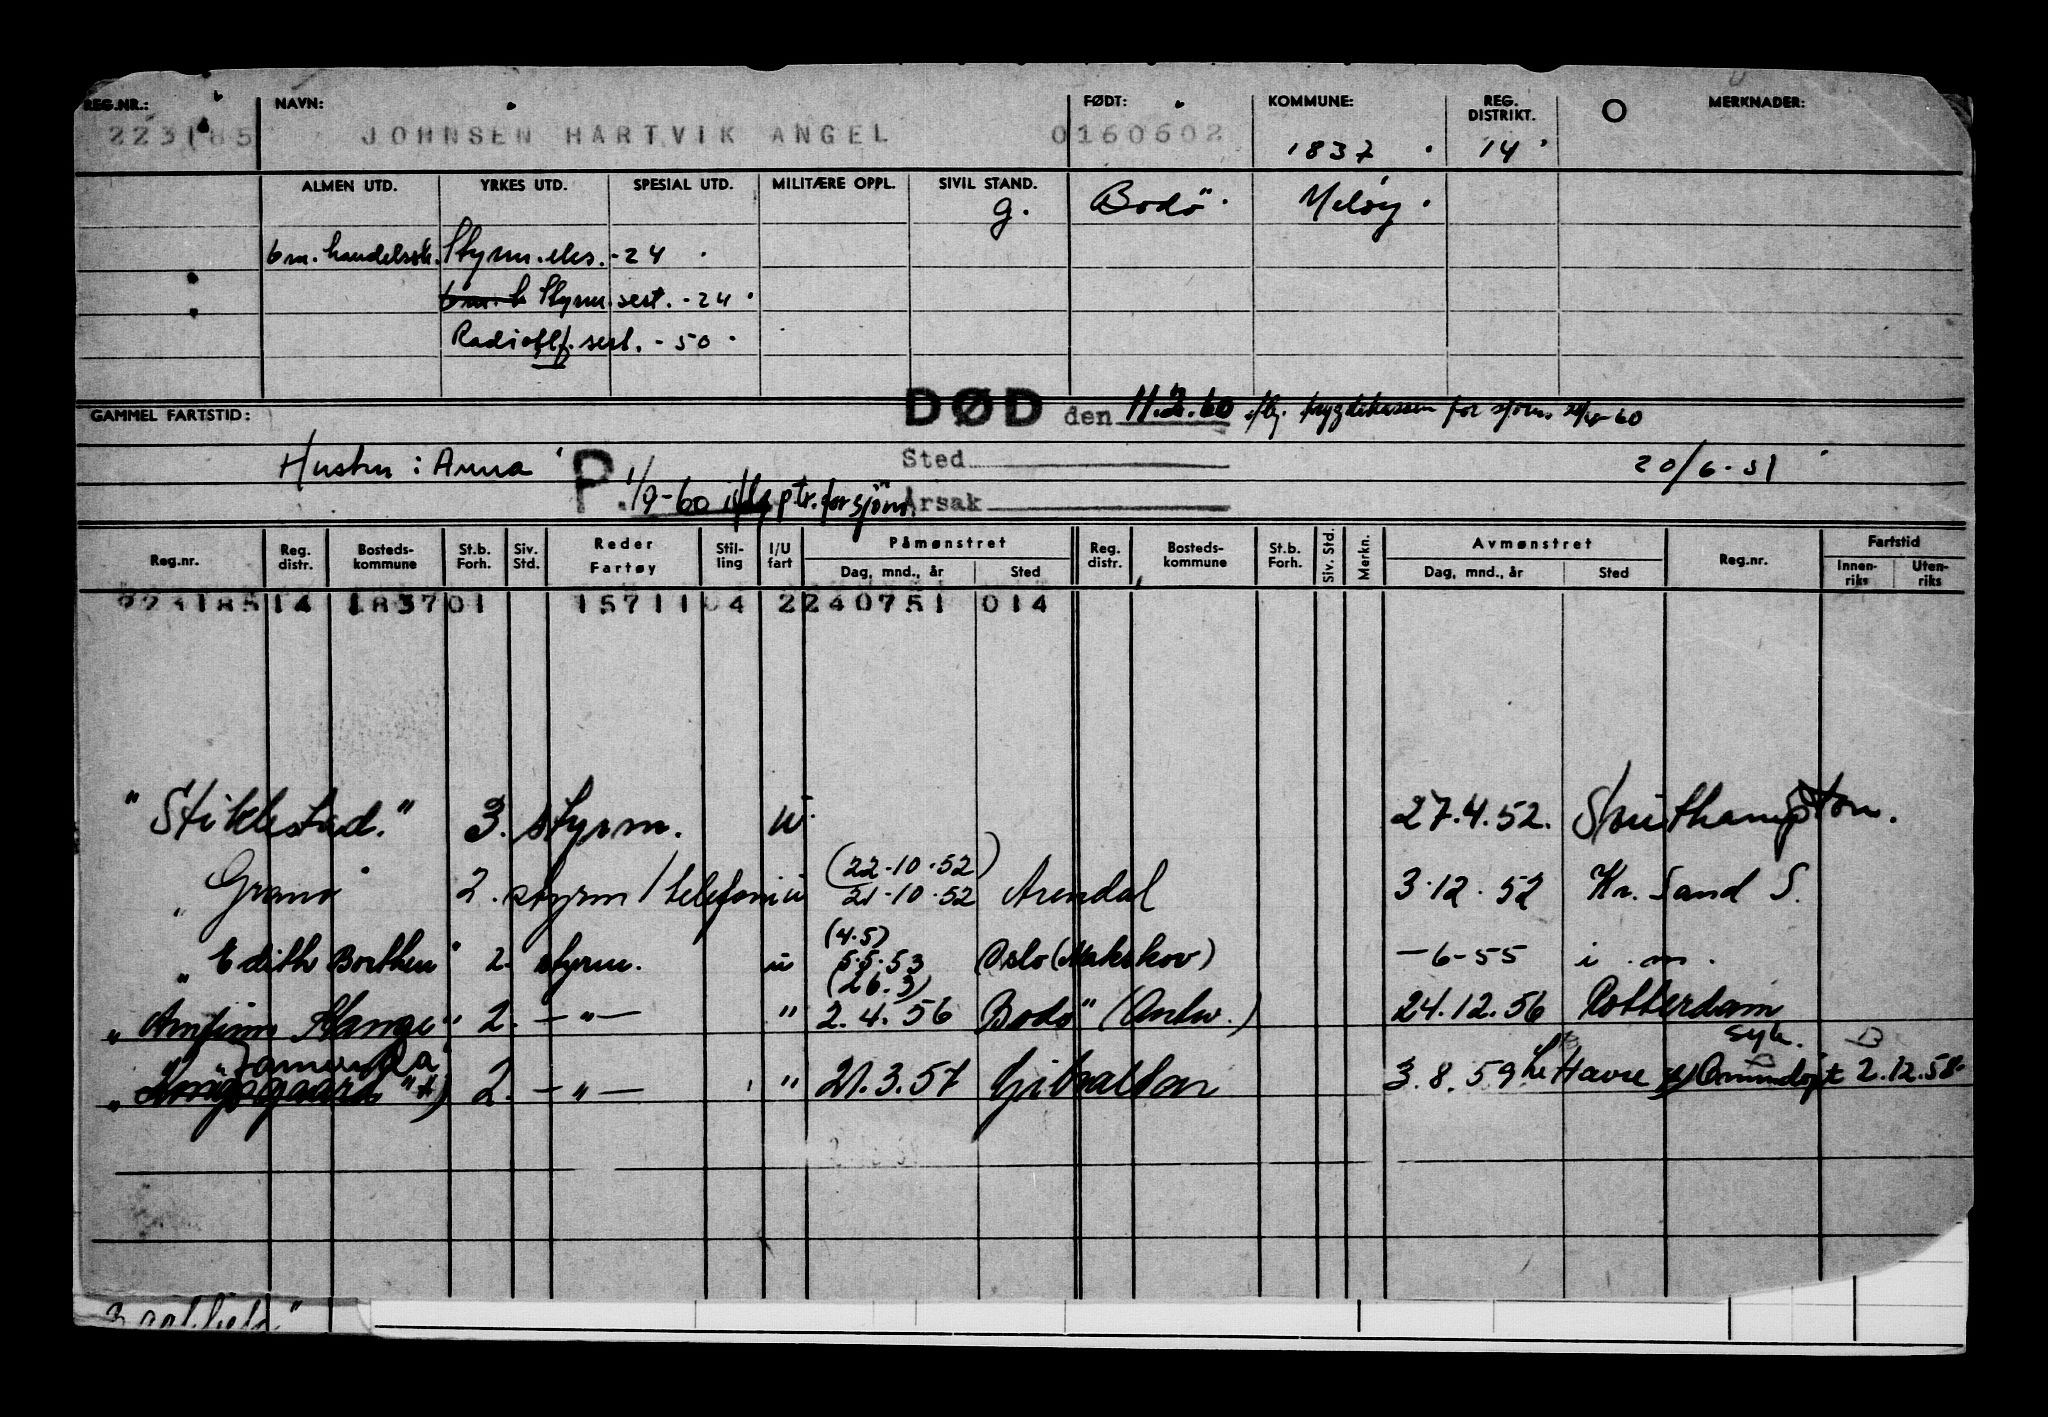 REG.NR.: NAVN: FØDT: KOMMUNE: REG. DISTRIKT. MERKNADER:
223185 JOHNSEN HARTVIK ANGEL 0160602 1837 14
ALMEN UTD. YRKES UTD. SPESIAL UTD. MILITÆRE OPPL. SIVIL STAND. Bodö Meløy
g.
6 m. handelssk. Styrm.eks. -24
Styrm.sert. -24
Radiotlf. sert. -50
GAMMEL FARTSTID: DØD den 11.2.60 iflg. trygdekassen for sjøm. -60
Hustru: Anna P. Sted 20/6-51
1/9-60 iflg ptr. for sjøm. Årsak
Reg.nr. Reg. distr. Bosteds-kommune St.b. Forh. Siv. Std. Reder Fartøy Stil-ling I/U fart Påmønstret Reg. distr. Bosteds-kommune St.b. Forh. Siv. Std. Merkn. Avmønstret Reg.nr. Fartstid
Dag, mnd., år Sted Dag, mnd., år Sted Innen-riks Uten-riks
223185 14 1837 01 15711 04 2 240751 014
"Stiklestad." 3. styrm. u. 27.4.52. Southampton.
(22.10.52)
"Grano" 2. styrm/telefoni u 21.10.52 Arendal 3.12.52 Kr. Sand S.
(4.5)
"Edith Borthen" 2. styrm. u 5.5.53 Oslo (Nakskov) -6-55 i. m.
(26.3)
"Arnfinn Stange" 2. -"- " 2.4.56 Bodö (Antw.) 24.12.56 Rotterdam
syk.
"Jamunda"
"Kongsgaard" x) 2. -"- " 21.3.57 Gibraltar 3.8.59 Le Havre x) Omundøpt 2.12.58